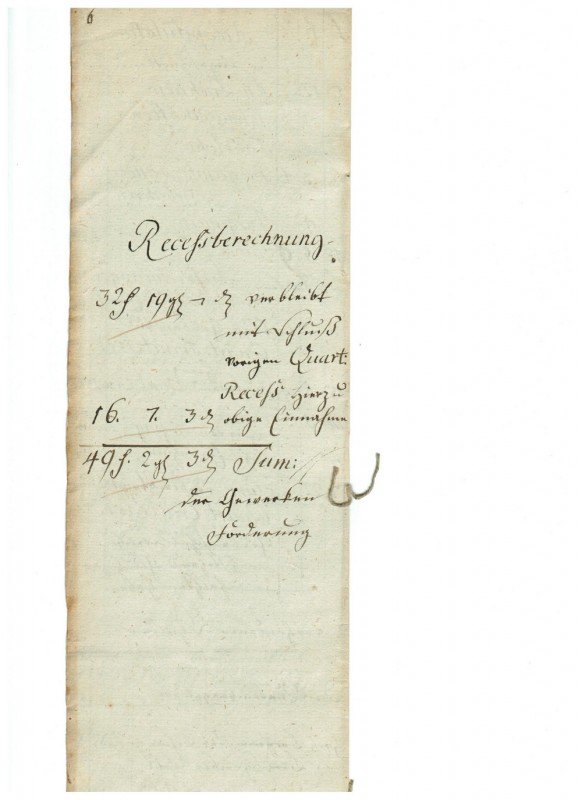 6
Recessberechnung.
32 f 19 gl – d verbleibt
mit Schluß
vorigen Quart:
Recess hierzu
16. 7. 3 d obige Einnahme
49 f. 2 gl 3 d Sum:
der Gewerken
Förderung